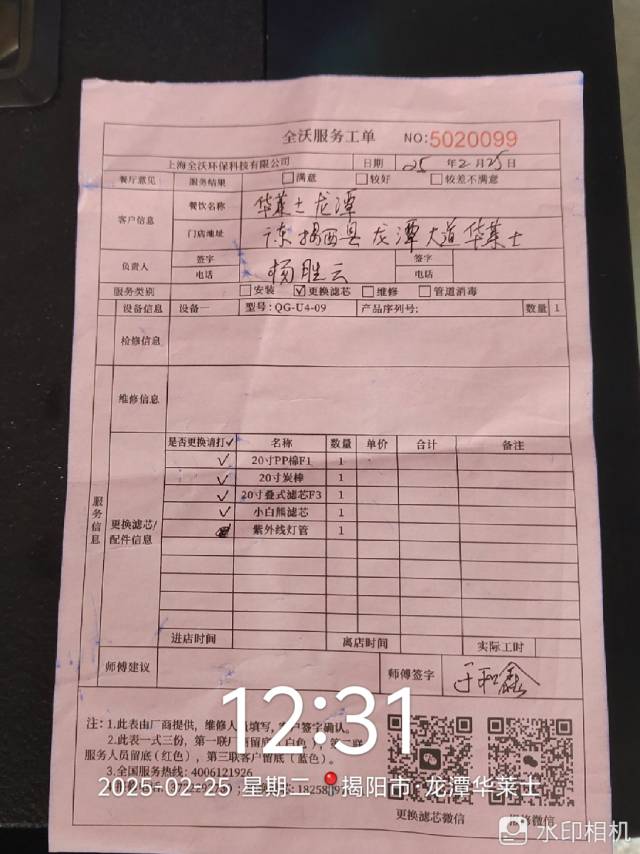 全沃服务工单 NO:5020099
上海全沃环保科技有限公司 日期 25 年 2 月 25 日
餐厅意见 服务结果 满意 较好 较差不满意
客户信息 餐饮名称 华莱士龙潭
门店地址 广东揭西县龙潭大道华莱士
负责人 签字 杨胜云 签字
电话 电话
服务类别 安装 ✓更换滤芯 维修 管道消毒
设备信息 设备一 型号: QG-U4-09 产品序列号; 数量 1
检修信息
维修信息
服务信息
更换滤芯/配件信息
是否更换请打✓ 名称 数量 单价 合计 备注
✓ 20寸PP棉F1 1
✓ 20寸炭棒 1
✓ 20寸叠式滤芯F3 1
✓ 小白熊滤芯 1
紫外线灯管 1
进店时间 离店时间 实际工时
师傅建议 师傅签字 于和鑫
12:31
注: 1.此表由厂商提供, 维修人员填写, 客户签字确认。
2.此表一式三份, 第一联厂商留底(白色), 第二联
服务人员留底(红色), 第三联客户留底(蓝色)。
3.全国服务热线: 4006121926
2025-02-25 星期二 揭阳市·龙潭华莱士
更换滤芯微信 报修微信
水印相机